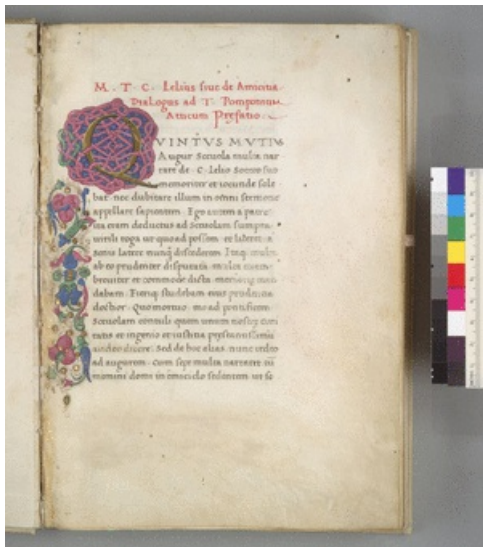 M. T. C. Lelius siue de Amicitia
Dialogus ad T. Pomponium
Atticum Prefatio
QVINTVS MVTIVS
Augur Scęuola multa nar
rare de C. Lelio Socero suo
memoriter et iocunde sole
bat nec dubitare illum in omni sermone
appellare sapientem Ego autem a patre
ita eram deductus ad Scęuolam sumpta
uirili toga ut quoad possem et liceret a
senis latere nunq̃ discederem Itaq̃ multa
ab eo prudenter disputata multa etiam
breuiter et commode dicta memorię man
dabam Fieriq̃ studebam eius prudentia
doctior Quo mortuo me ad pontificem
Scęuolam contuli quem unum nostrę ciui
tatis et ingenio et iustitia prestantissimũ
audeo dicere Sed de hoc alias nunc redeo
ad augurem Cum sepe multa narraret tũ
memini domi in emiciclo sedentem ut so